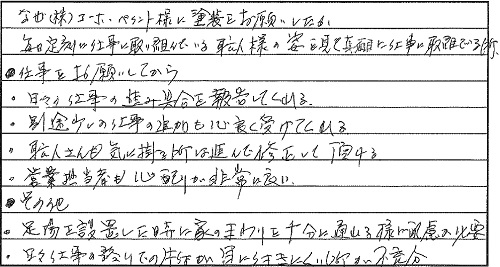 なぜ(株)エーホーペイント様に塗装をお願いしたか
毎日定刻に仕事に取り組んでいる職人様の姿を見て真面目に仕事に取組んでいる所
●仕事をお願いしてから
・日々の仕事の進み具合を報告してくれる
・別途少しの仕事の追加も心良く受けてくれる
・職人さんも気に掛る所は進んで修正して頂ける
・営業担当者も心配りが非常に良い
●その他
・足場を設置した時に家のまわりを十分に通れる様に配慮が必要
・日々仕事の終りでの片付が 目に付きにくい所が不充分